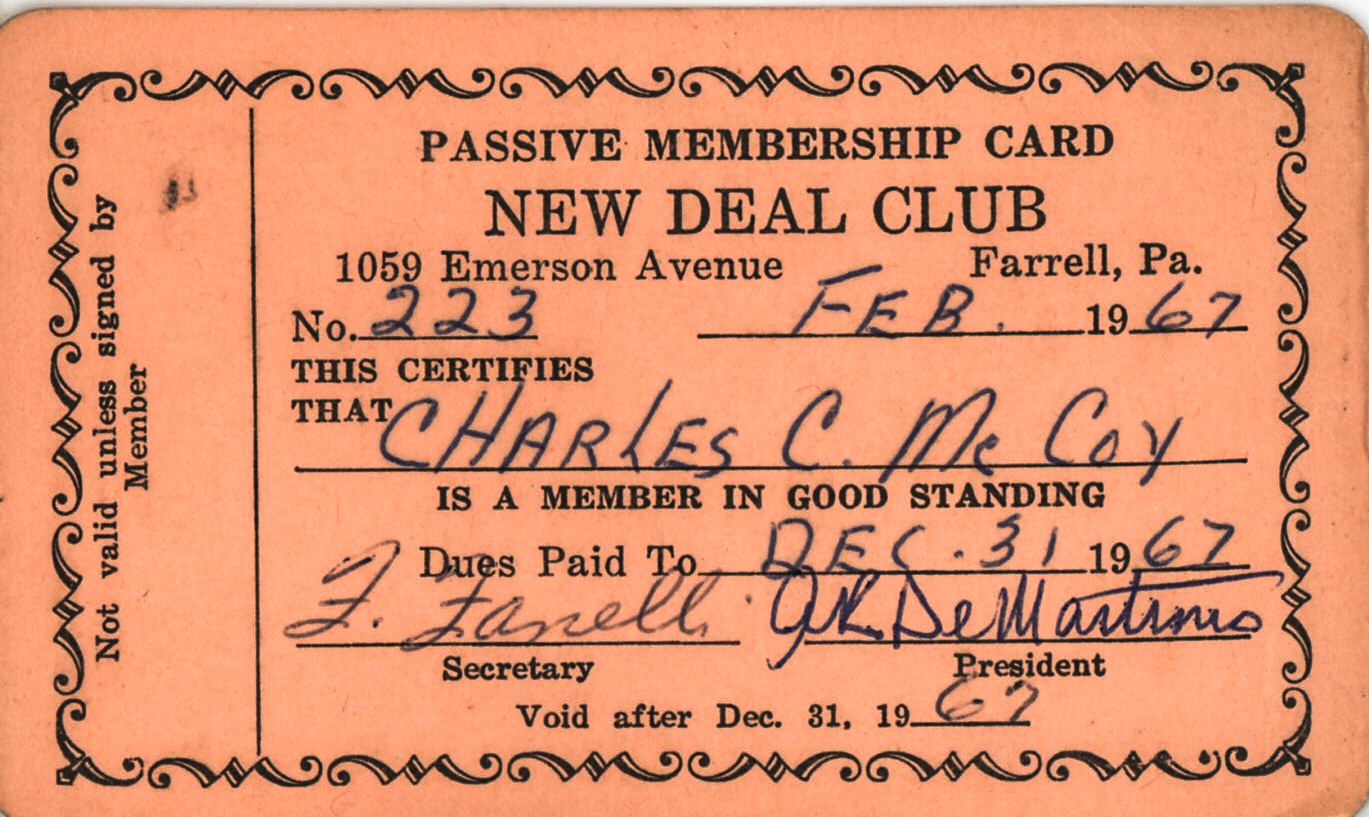 PASSIVE MEMBERSHIP CARD
NEW DEAL CLUB
1059 Emerson Avenue Farrell, Pa.
No. 223 FEB. 1967
THIS CERTIFIES
THAT CHARLES C. Mc Coy
IS A MEMBER IN GOOD STANDING
Dues Paid To DEC. 31 1967
F. Fanelli JR DeMartinis
Secretary President
Void after Dec. 31, 1967
Not valid unless signed by
Member